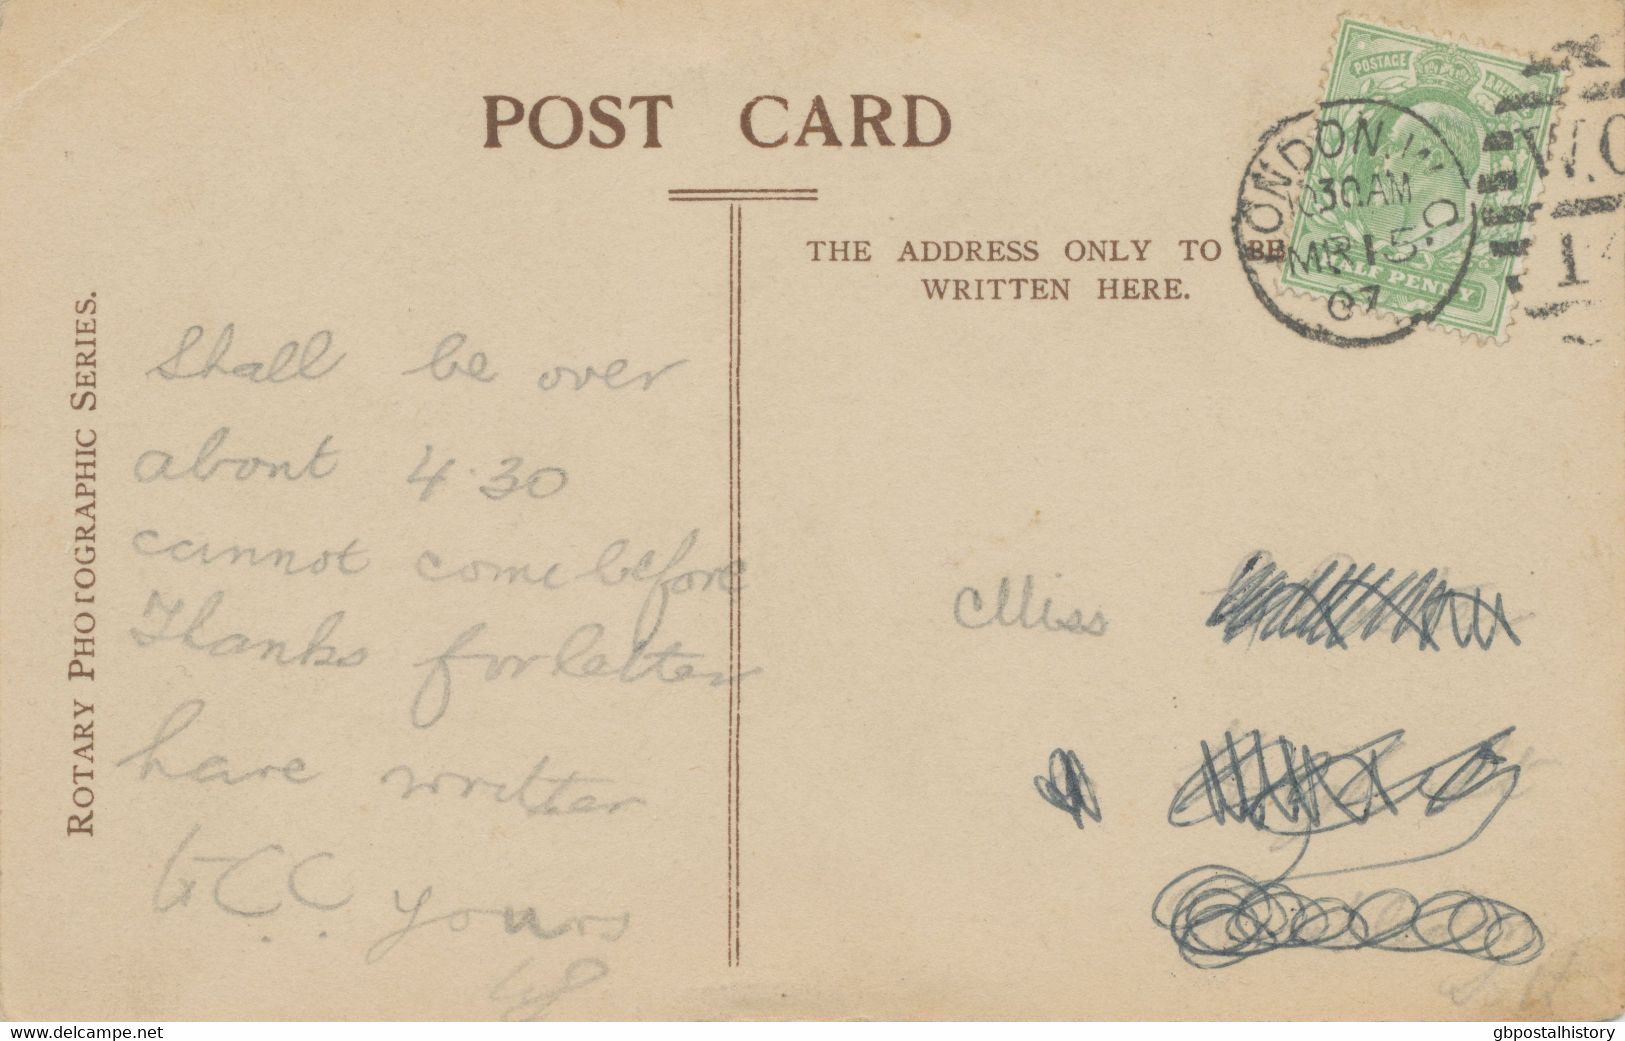 POST CARD
THE ADDRESS ONLY TO BE
WRITTEN HERE.
ROTARY PHOTOGRAPHIC SERIES.
POSTAGE
HALF PENNY
LONDON. W.C.
10.30.AM
MR 15
07
W.C
14
Shall be over
about 4.30
cannot come before
Thanks for letter
have written
G.C.C. yours
Miss
www.delcampe.net
gbpostalhistory